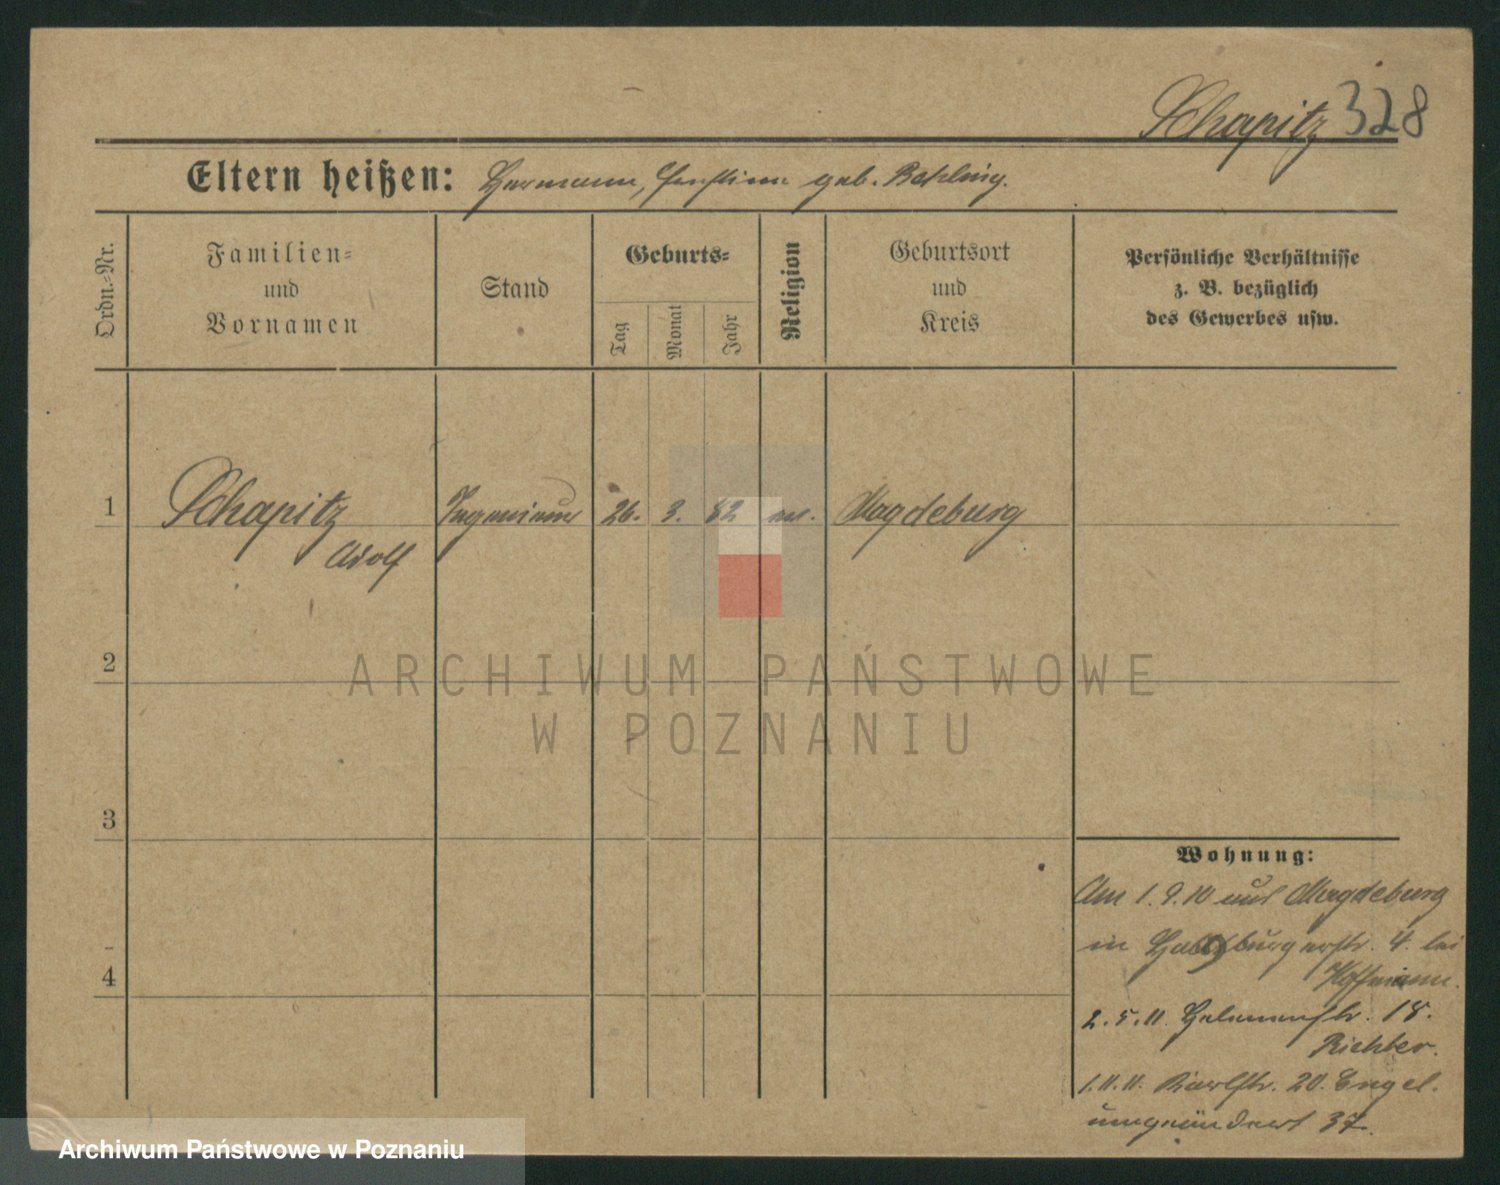 Schapitz 328
Eltern heißen: Hermann, geb. Behling.
Ordn.-Nr.
Familien-
und
Vornamen
Stand
Geburts-
Tag
Monat
Jahr
Religion
Geburtsort
und
Kreis
Persönliche Verhältnisse
z. B. bezüglich
des Gewerbes usw.
1 Schapitz Ingenieur 26. 3. 82 ev. Magdeburg
Adolf
2
ARCHIWUM PAŃSTWOWE
W POZNANIU
3
Wohnung:
Am 1.9.10 aus Magdeburg
in 4. bei
4 Hoffmann.
2.5.11. Helenenstr. 18.
Richter.
1.11.11. Karlstr. 20. Engel.
umgeändert 37.
Archiwum Państwowe w Poznaniu